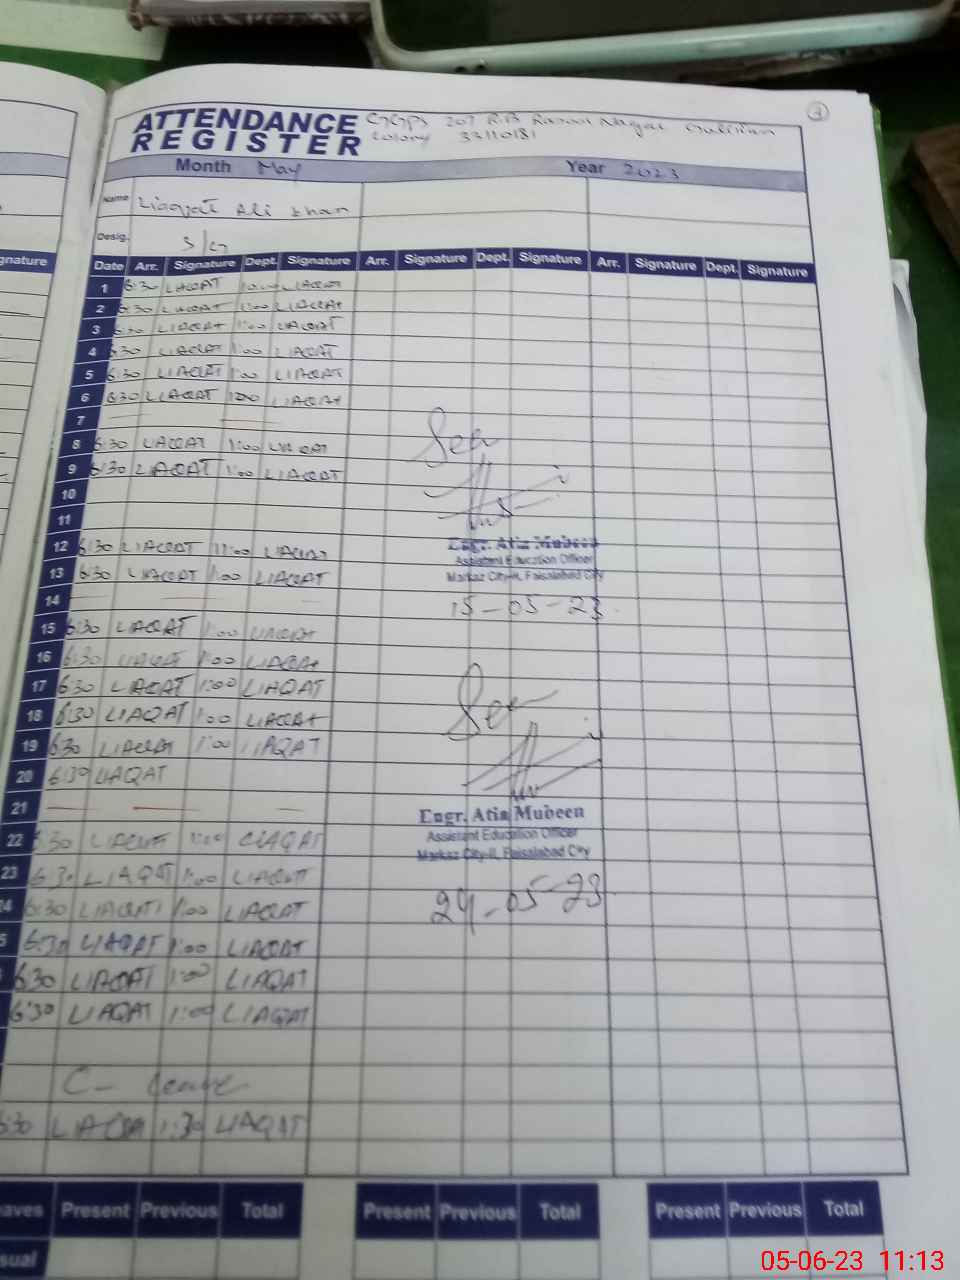 ATTENDANCE REGISTER
GGPS 207 R.B
Colony 33110181
Month May Year 2023
Name Liaqat Ali Khan
Desig.
Date Arr. Signature Dept. Signature Arr. Signature Dept. Signature Arr. Signature Dept. Signature
1 6:30 LIAQAT LIAQAT
2 6:30 LIAQAT 1:00 LIAQAT
3 6:30 LIAQAT 1:00 LIAQAT
4 6:30 LIAQAT 1:00 LIAQAT
5 6:30 LIAQAT 1:00 LIAQAT
6 6:30 LIAQAT 1:00 LIAQAT
7
8 6:30 LIAQAT 1:00 LIAQAT
9 6:30 LIAQAT 1:00 LIAQAT
10
11
12 6:30 LIAQAT 11:00 LIAQAT
13 6:30 LIAQAT 1:00 LIAQAT
14
15 6:30 LIAQAT 1:00 LIAQAT
16 6:30 LIAQAT 1:00 LIAQAT
17 6:30 LIAQAT 1:00 LIAQAT
18 6:30 LIAQAT 1:00 LIAQAT
19 6:30 LIAQAT 1:00 LIAQAT
20 6:30 LIAQAT
21
22 6:30 LIAQAT 1:00 LIAQAT
23 6:30 LIAQAT 1:00 LIAQAT
24 6:30 LIAQAT 1:00 LIAQAT
6:30 LIAQAT 1:00 LIAQAT
6:30 LIAQAT 1:00 LIAQAT
6:30 LIAQAT 1:00 LIAQAT
C- Leave
6:30 LIAQAT 1:30 LIAQAT
Seen
Engr. Atiz Mubeen
Assistant Education Officer
Markaz City-II, Faisalabad City
15-05-23
Seen
Engr. Atiz Mubeen
Assistant Education Officer
Markaz City-II, Faisalabad City
24-05-23
Present Previous Total Present Previous Total Present Previous Total
05-06-23 11:13